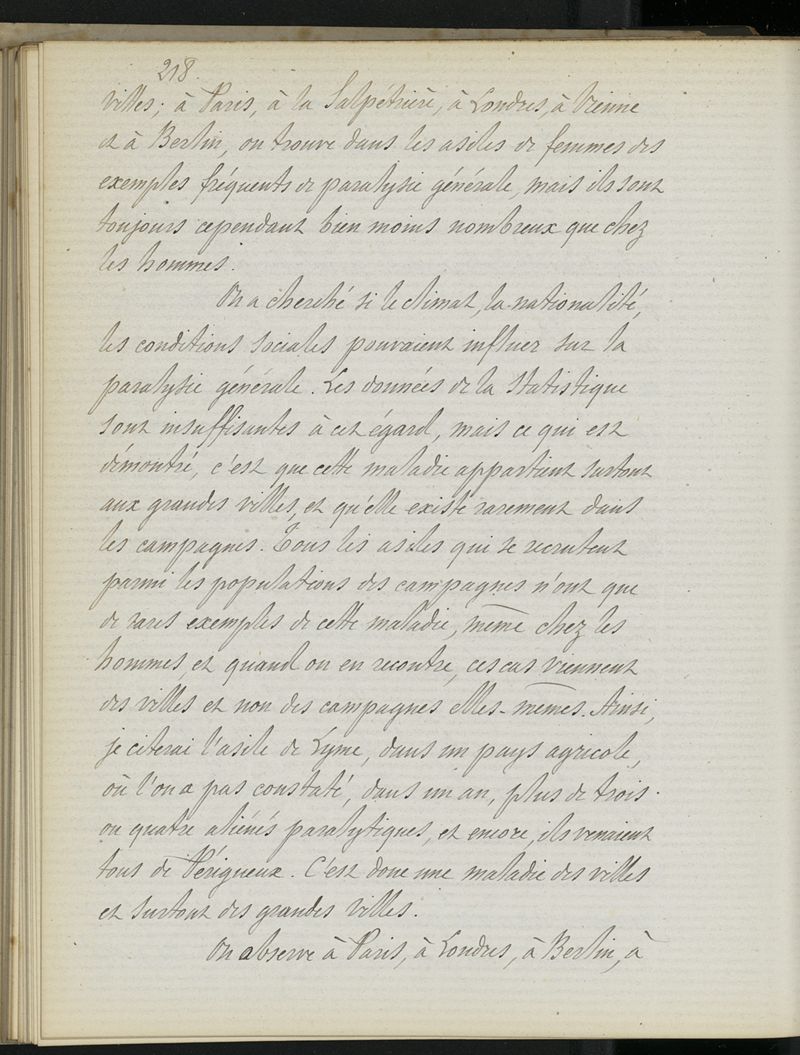 218.
villes; à Paris, à la Salpétrière, à Londres, à Vienne
et à Berlin, on trouve dans les asiles de femmes des
exemples fréquents de paralysie générale, mais ils sont
toujours cependant bien moins nombreux que chez
les hommes.
On a cherché si le climat, la nationalité,
les conditions sociales pouvaient influer sur la
paralysie générale. Les données de la Statistique
sont insuffisantes à cet égard, mais ce qui est
démontré, c'est que cette maladie appartient surtout
aux grandes villes, et qu'elle existe rarement dans
les campagnes. Tous les asiles qui se recrutent
parmi les populations des campagnes n'ont que
de rares exemples de cette maladie, même chez les
hommes, et quand on en recontre, ces cas viennent
des villes et non des campagnes elles-mêmes. Ainsi,
je citerai l'asile de Lyme, dans un pays agricole,
où l'on a pas constaté, dans un an, plus de trois
ou quatre aliénés paralytiques, et encore, ils venaient
tous de Périgueux. C'est donc une maladie des villes
et surtout des grandes villes.
On observe à Paris, à Londres, à Berlin, à